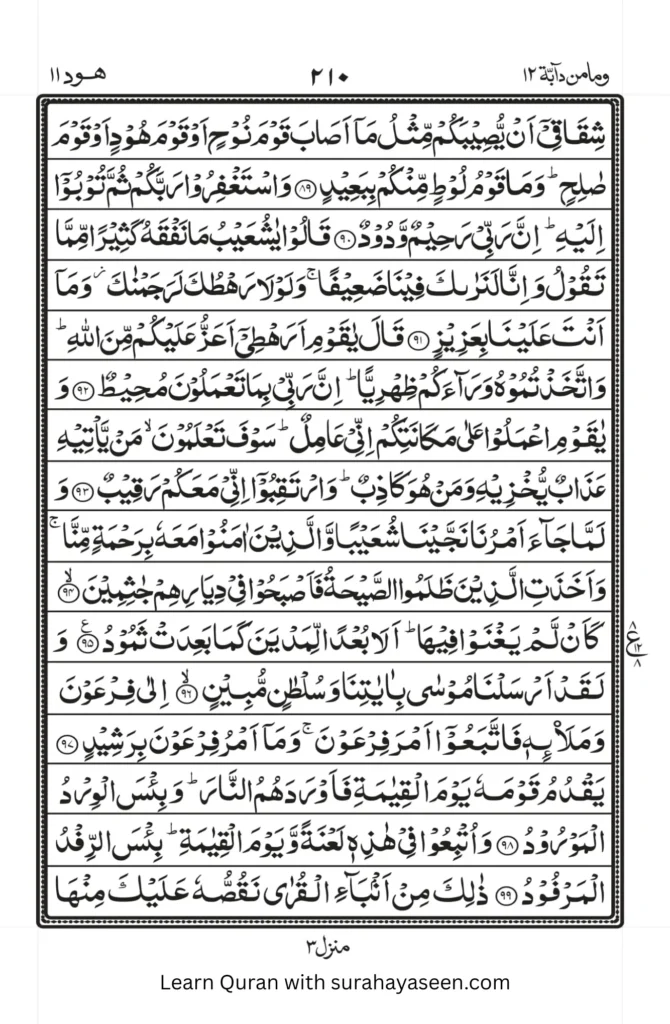 ومامن دآبّة ١٢
٢١٠
هود ١١
شِقَاقِیْۤ اَنْ یُّصِیْبَكُمْ مِّثْلُ مَاۤ اَصَابَ قَوْمَ نُوْحٍ اَوْ قَوْمَ هُوْدٍ اَوْ قَوْمَ
صٰلِحٍ ؕ وَ مَا قَوْمُ لُوْطٍ مِّنْكُمْ بِبَعِیْدٍ ﴿۸۹﴾ وَ اسْتَغْفِرُوْا رَبَّكُمْ ثُمَّ تُوْبُوْۤا
اِلَیْهِ ؕ اِنَّ رَبِّیْ رَحِیْمٌ وَّدُوْدٌ ﴿۹۰﴾ قَالُوْا یٰشُعَیْبُ مَا نَفْقَهُ كَثِیْرًا مِّمَّا
تَقُوْلُ وَ اِنَّا لَنَرٰىكَ فِیْنَا ضَعِیْفًا ۚ وَ لَوْ لَا رَهْطُكَ لَرَجَمْنٰكَ ؗ وَ مَاۤ
اَنْتَ عَلَیْنَا بِعَزِیْزٍ ﴿۹۱﴾ قَالَ یٰقَوْمِ اَرَهْطِیْۤ اَعَزُّ عَلَیْكُمْ مِّنَ اللّٰهِ ؕ
وَ اتَّخَذْتُمُوْهُ وَرَآءَكُمْ ظِهْرِیًّا ؕ اِنَّ رَبِّیْ بِمَا تَعْمَلُوْنَ مُحِیْطٌ ﴿۹۲﴾ وَ
یٰقَوْمِ اعْمَلُوْا عَلٰی مَكَانَتِكُمْ اِنِّیْ عَامِلٌ ؕ سَوْفَ تَعْلَمُوْنَ ۙ مَنْ یَّاْتِیْهِ
عَذَابٌ یُّخْزِیْهِ وَ مَنْ هُوَ كَاذِبٌ ؕ وَ ارْتَقِبُوْۤا اِنِّیْ مَعَكُمْ رَقِیْبٌ ﴿۹۳﴾ وَ
لَمَّا جَآءَ اَمْرُنَا نَجَّیْنَا شُعَیْبًا وَّ الَّذِیْنَ اٰمَنُوْا مَعَهٗ بِرَحْمَةٍ مِّنَّا ۚ
وَ اَخَذَتِ الَّذِیْنَ ظَلَمُوا الصَّیْحَةُ فَاَصْبَحُوْا فِیْ دِیَارِهِمْ جٰثِمِیْنَ ﴿ۙ۹۴﴾
كَاَنْ لَّمْ یَغْنَوْا فِیْهَا ؕ اَلَا بُعْدًا لِّمَدْیَنَ كَمَا بَعِدَتْ ثَمُوْدُ ﴿۹۵﴾ ع وَ
٨ ع ١٢ ٨
لَقَدْ اَرْسَلْنَا مُوْسٰی بِاٰیٰتِنَا وَ سُلْطٰنٍ مُّبِیْنٍ ﴿ۙ۹۶﴾ اِلٰی فِرْعَوْنَ
وَ مَلَاۡئِهٖ فَاتَّبَعُوْۤا اَمْرَ فِرْعَوْنَ ۚ وَ مَاۤ اَمْرُ فِرْعَوْنَ بِرَشِیْدٍ ﴿۹۷﴾
یَقْدُمُ قَوْمَهٗ یَوْمَ الْقِیٰمَةِ فَاَوْرَدَهُمُ النَّارَ ؕ وَ بِئْسَ الْوِرْدُ
الْمَوْرُوْدُ ﴿۹۸﴾ وَ اُتْبِعُوْا فِیْ هٰذِهٖ لَعْنَةً وَّ یَوْمَ الْقِیٰمَةِ ؕ بِئْسَ الرِّفْدُ
الْمَرْفُوْدُ ﴿۹۹﴾ ذٰلِكَ مِنْ اَنْۢبَآءِ الْقُرٰی نَقُصُّهٗ عَلَیْكَ مِنْهَا
منزل ٣
Learn Quran with surahayaseen.com